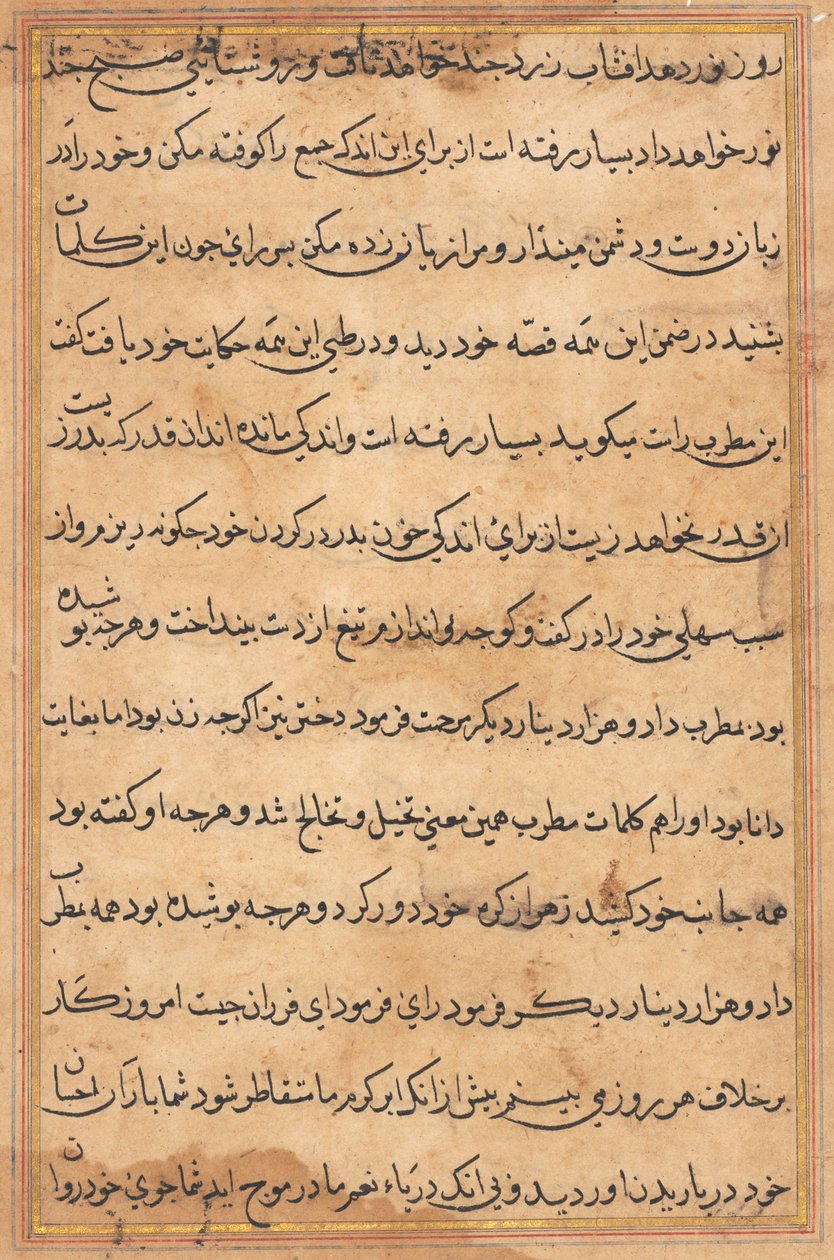 روز نور دهد افتاب زرد جند خواهد تافت و روشنایئی صبح جند
نور خواهد داد بسیار رفته است از برای این اندک جمع را کوفته مکن و خود را در
زبان دوست و دشمن مینداز و مرا زیان زده مکن پس رای جون این کلمات
بشنید در ضمن این همه قصّه خود دید و در طیی این همه حکایت خود یافت کفت
این مطرب راست میکوید بسیار رفته است و اندکی مانده اند از قدر که بدر زیست
از قدر نخواهد زیست از برای اندکی خون بدر در کردن خود جکونه ریزم و از
سبب سهلی خود را در کفت و کوجه نو اندازم تیغ از دست بینداخت و هرجه بوشیده
بود بمطرب داد و هزار دینار دیکر مرحمت فرمود دختر نیز اکرجه زن بود اما بغایت
دانا بود او را هم کلمات مطرب همین معنی تخیل و تخالج شد و هرجه او کفته بود
همه جانب خود کشید زهر از کره خود دور کرد و هرجه بوشیده بود همه بمطرب
داد و هزار دینار دیکر فرمود رای فرمود ای فرزان جیست امروز کار
برخلاف هر روز می بینم بیش از انک ابر کرم ما متقاطر شود شما باران احسان
خود در باریدن اوردید و بی انک دریاء نعم ما در موج اید شما جوی خود روان